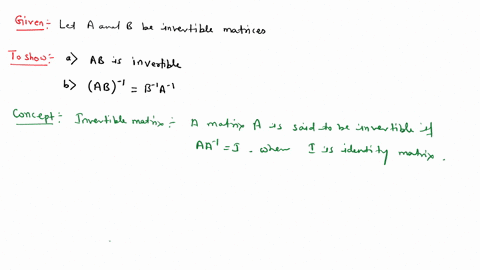 Given:- Let A and B be invertible matrices
To show:- a> AB is invertible
b> (AB)⁻¹ = B⁻¹A⁻¹
Concept:- Invertible matrix:- A matrix A is said to be invertible if
AA⁻¹ = I. when I is identity matrix.